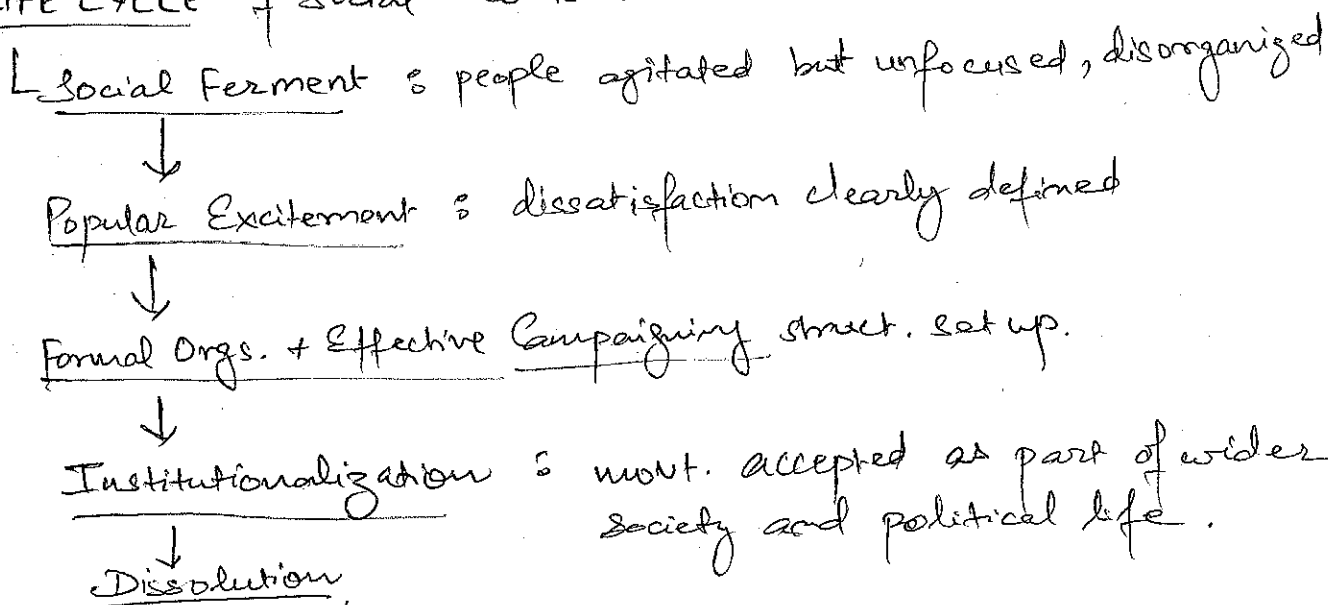 LIFE CYCLE of Social
Social Ferment : people agitated but unfocused, disorganized
↓
Popular Excitement : dissatisfaction clearly defined
↓
Formal Orgs. + Effective Campaigning struct. set up.
↓
Institutionalization : movt. accepted as part of wider
society and political life.
↓
Dissolution.